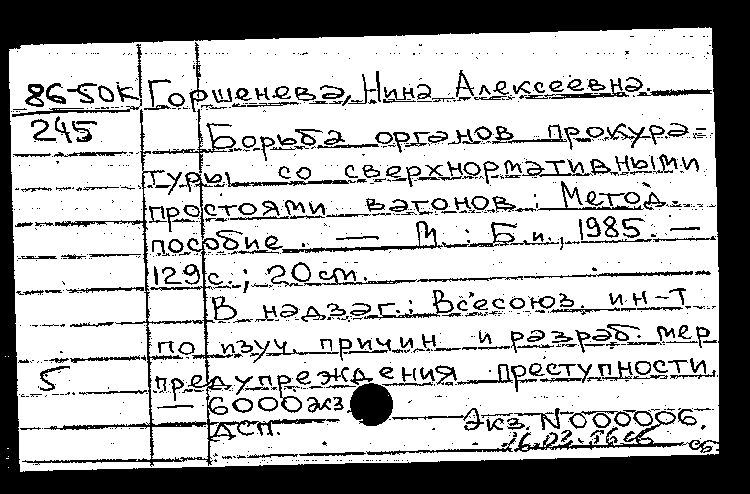 86-50К Горшенева, Нина Алексеевна.
245 Борьба органов прокура=
туры со сверхнормативными
простоями вагонов : Метод.
пособие. — М. : Б.и., 1985. —
129 с. ; 20 см.
В надзаг.: Всесоюз. ин-т
по изуч. причин и разраб. мер
5 предупреждения преступности.
— 6000 экз.
ДСП. Экз. N000006.
26.02.86 сб
сб